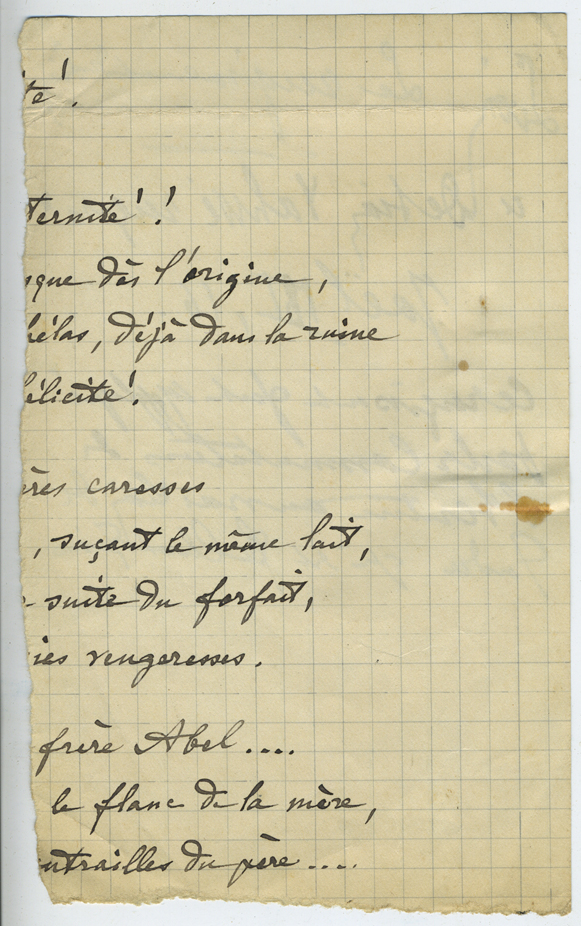 té!
ternité!!
sque dès l'origine,
hélas, déjà dans la ruine
félicité!
ères caresses
, suçant le même lait,
suite du forfait,
ies vengeresses.
frère Abel....
le flanc de la mère,
ntrailles du père....